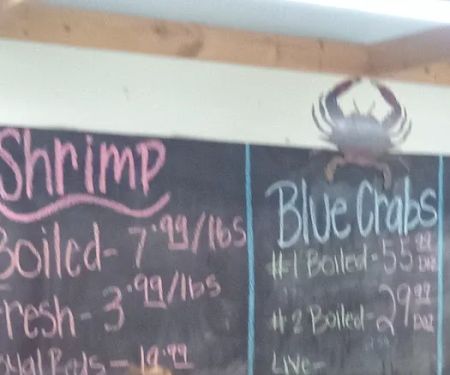 Shrimp
Boiled - 7.99/lbs
Fresh - 3.99/lbs
Royal Reds - 19.99
Blue Crabs
#1 Boiled - 55.99 DOZ
#2 Boiled - 29.99 DOZ
Live -